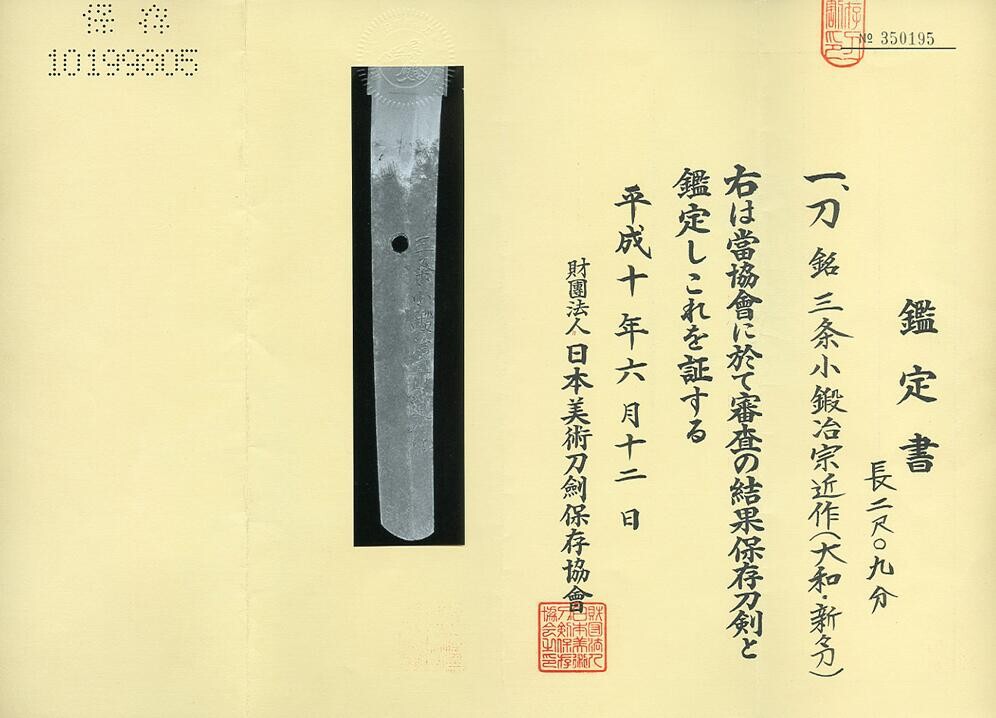 鑑定書
長二尺〇九分
一、刀 銘 三条小鍛冶宗近作(大和・新々刀)
右は當協會に於て審査の結果保存刀剣と
鑑定しこれを証する
平成十年六月十二日
財團法人 日本美術刀劍保存協會
№ 350195
保存
10199805